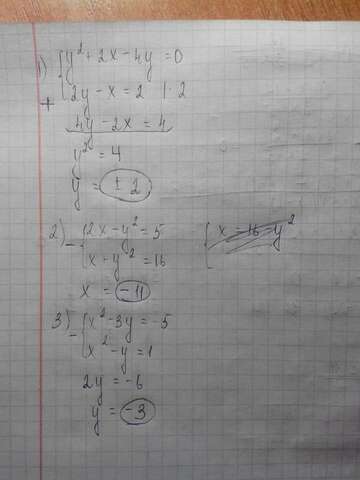 1) { y² + 2x - 4y = 0
+ { 2y - x = 2 | · 2
4y - 2x = 4
y² = 4
y = ± 2
2) - { 2x - y² = 5
{ x - y² = 16
x = -11
{ x = 16 - y²
3) - { x² - 3y = -5
{ x² - y = 1
2y = -6
y = -3